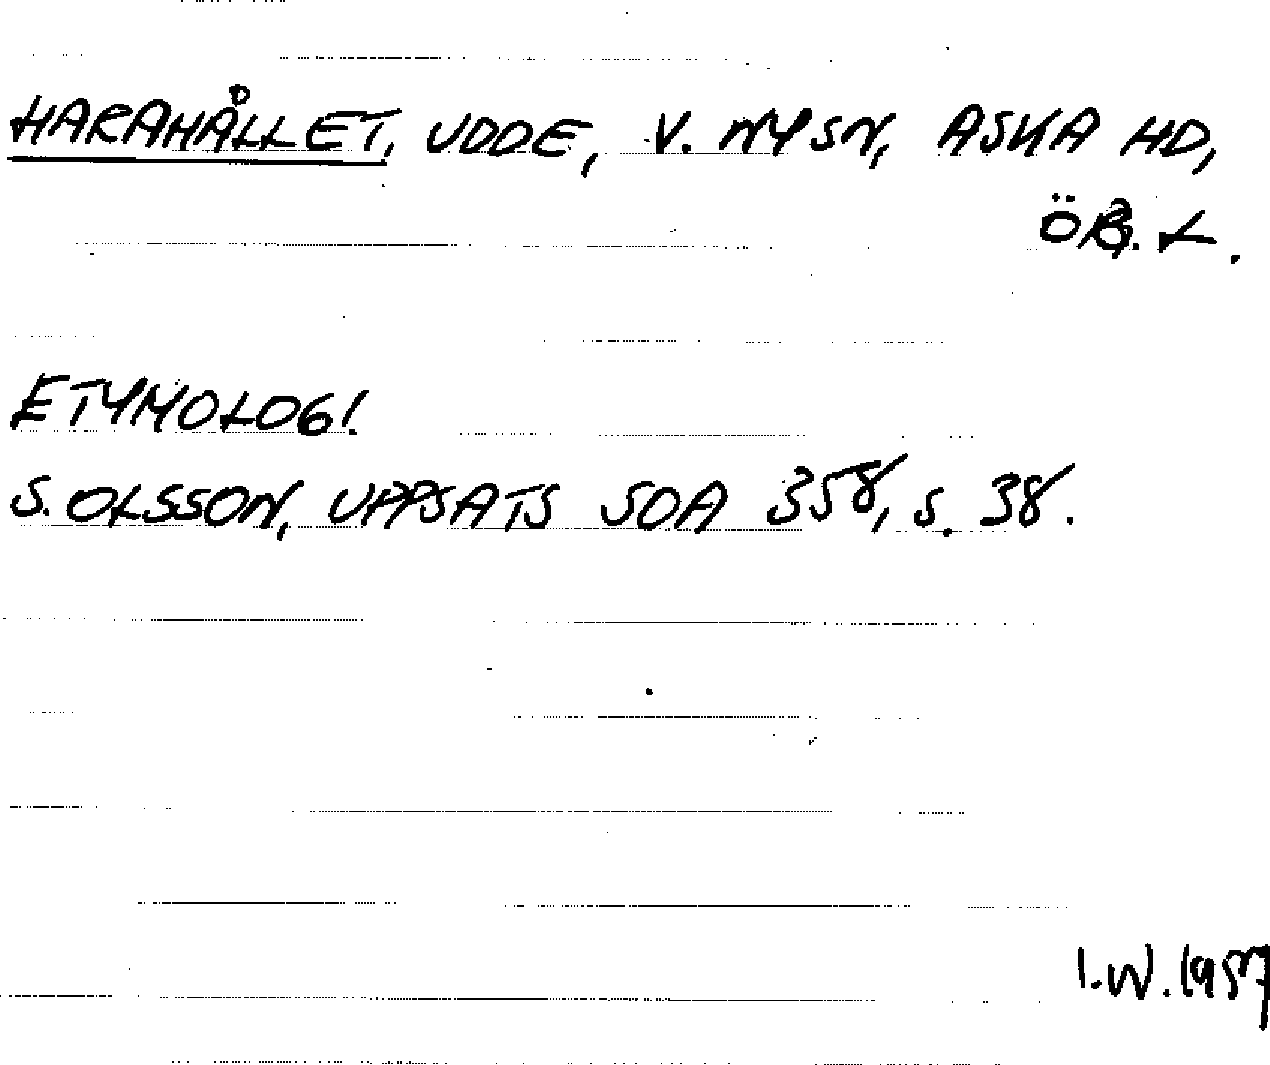 HARAHÅLLET, UDDE, V. NY SN, ASKA HD,
ÖG. L.
ETYMOLOGI.
S. OLSSON, UPPSATS SOA 358, S. 38.
I.W. 1957